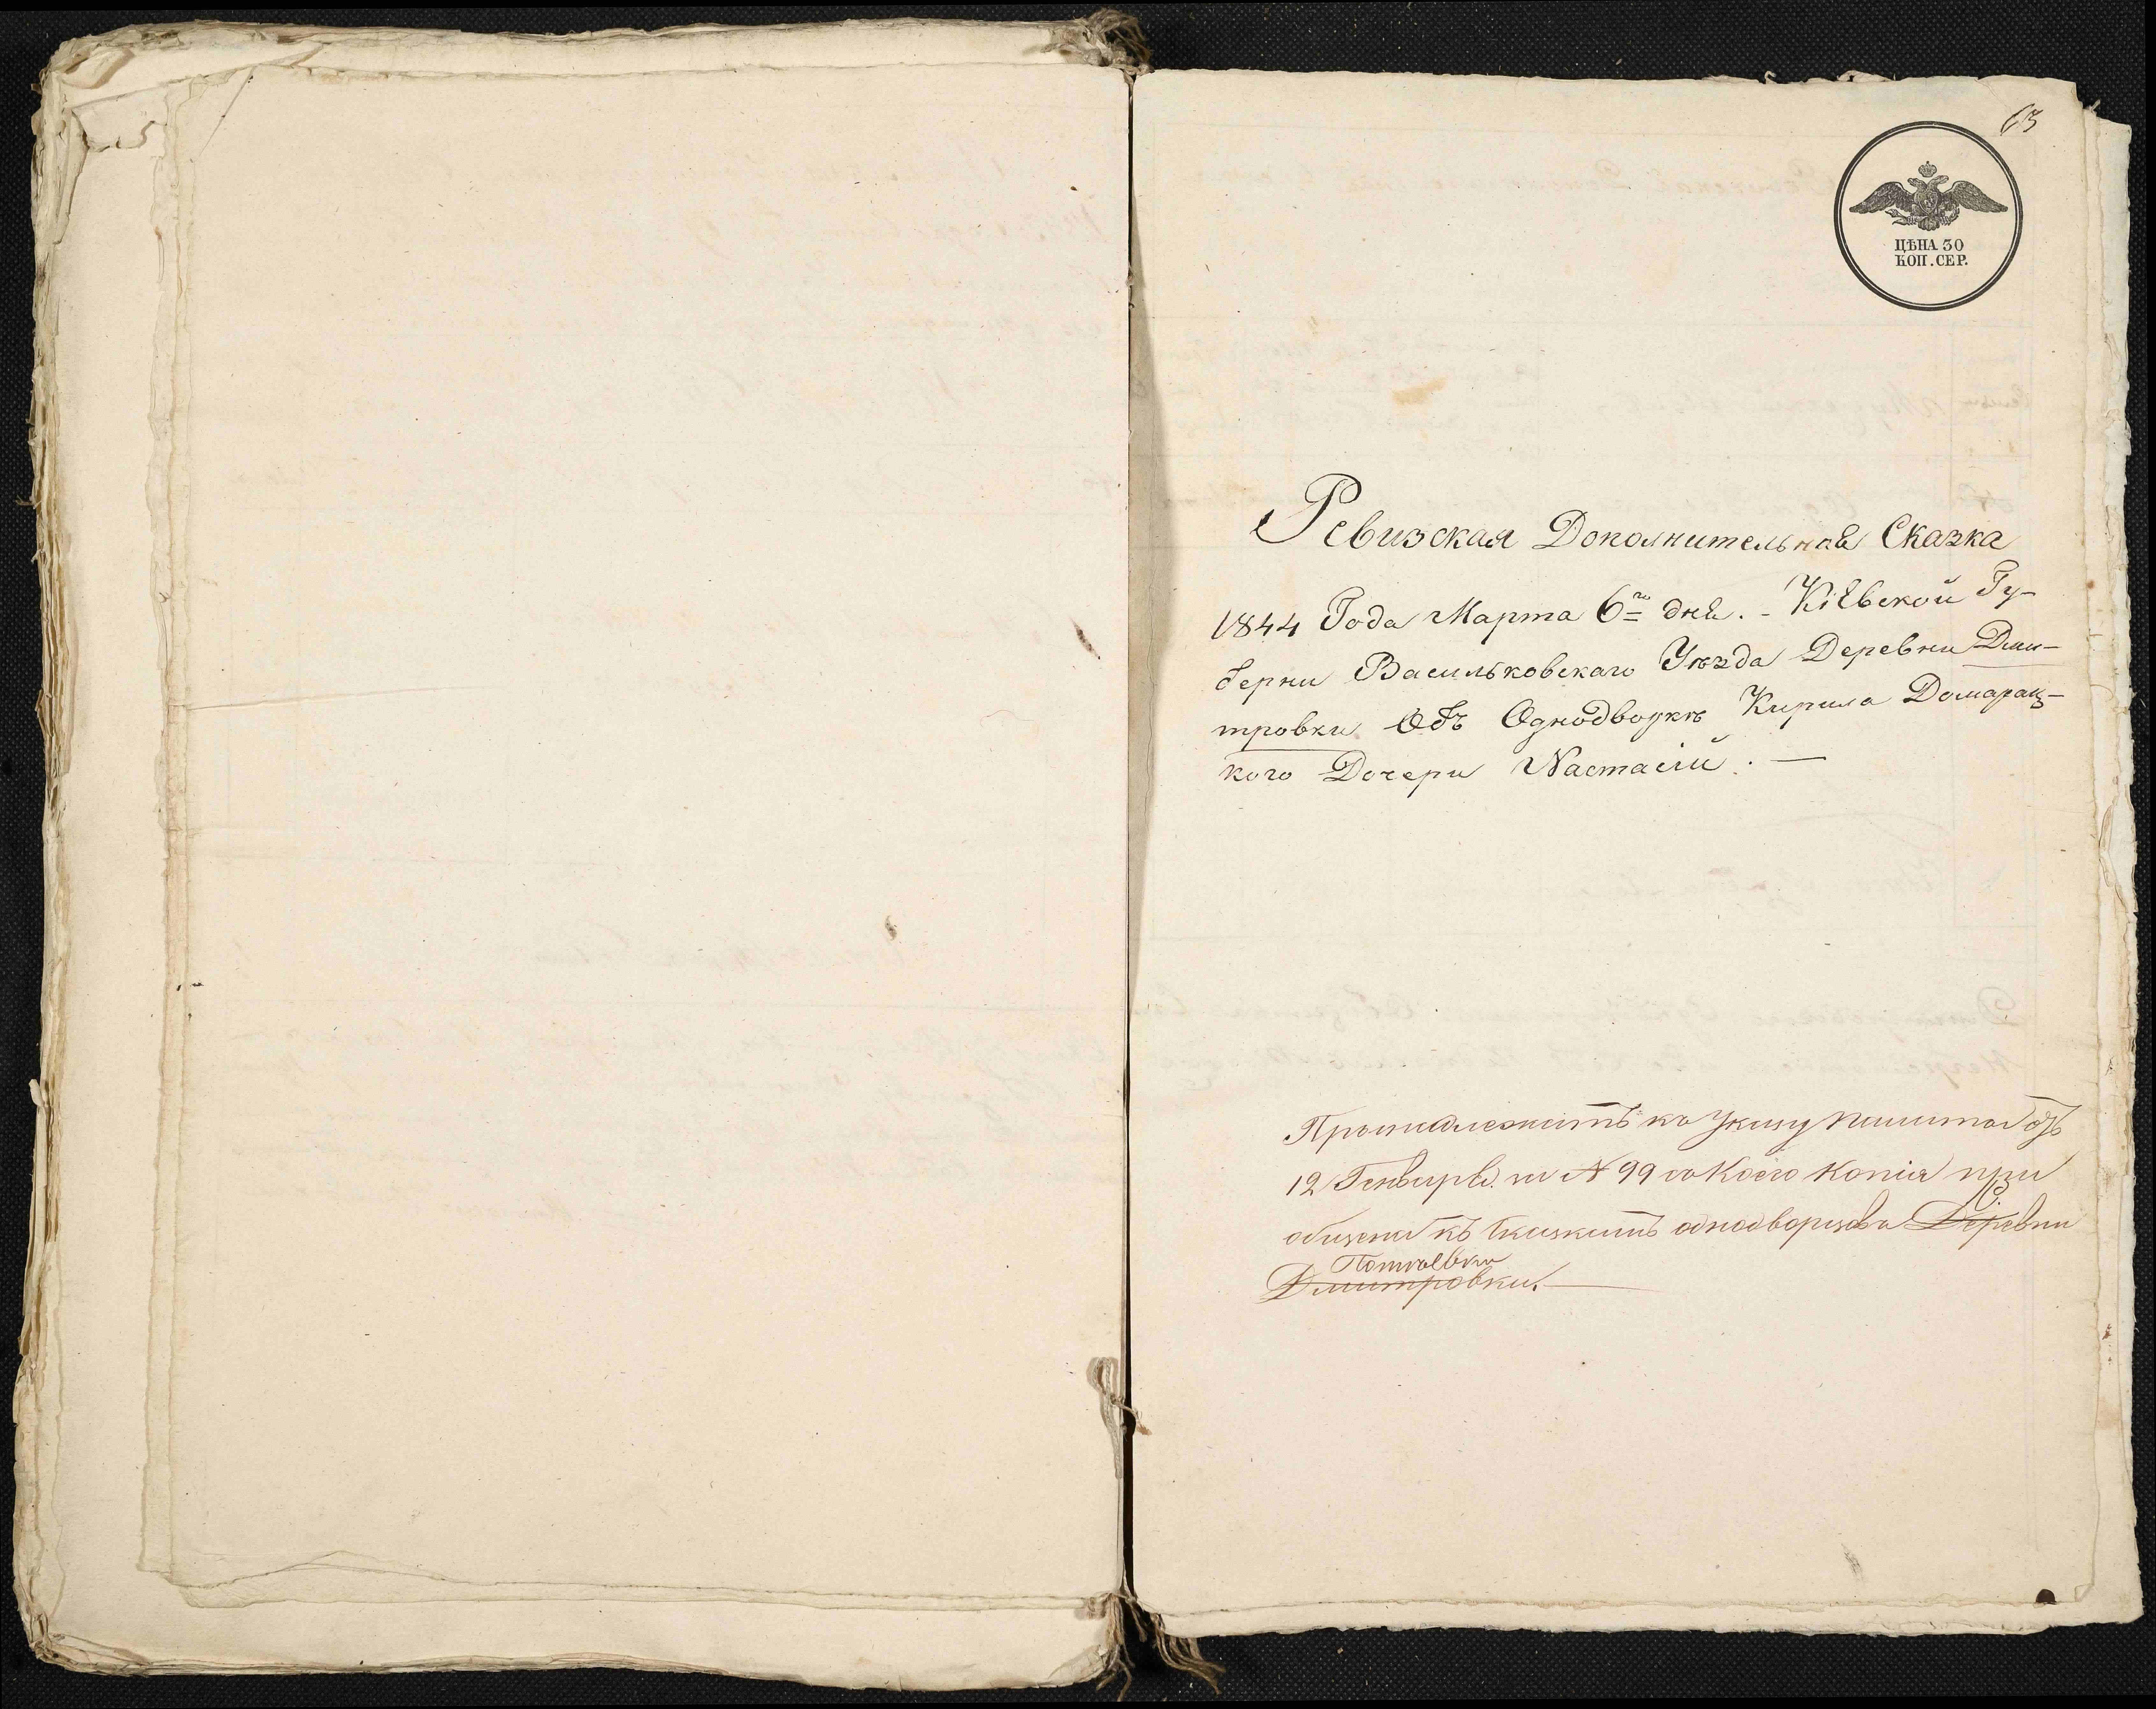 63
ЦѢНА 30
КОП. СЕР.
Ревизская Дополнительная Сказка
1844 Года Марта 6го дня. - Кіевской Гу-
берни Васильковскаго Уѣзда Деревни Дми-
тровки Объ Однодворкѣ Кирила Домарац-
кого Дочери Настасіи. —
Принадлежитъ къ Указу палаты отъ
12 Генваря. за № 99 съ коего копія при
общена къ сказкамъ однодворцовъ Деревни
Дмитровки.